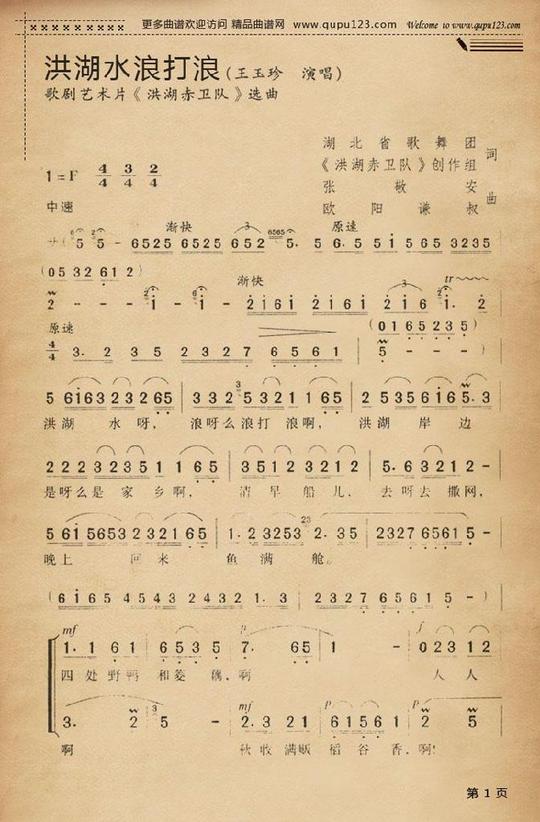 更多曲谱欢迎访问 精品曲谱网 www.qupu123.com Welcome to www.qupu123.com
洪湖水浪打浪(王玉珍 演唱)
歌剧艺术片《洪湖赤卫队》选曲
湖北省歌舞团
《洪湖赤卫队》创作组 词
张敬安
欧阳谦叔 曲
1=F 4/4 3/4 2/4
中速
渐快 原速
5 5 - 6525 6525 652 5. 5 6. 5 5 i 5 65 3235
(05 32 61 2)
渐快 tr
2 - - i - i - - 2 i 6 i 2 i 6 i 2 i 6 i. 2
原速 (01 65 23 5)
4/4 3. 2 3 5 2 3 2 7 6 5 6 1 5 - - -)
5 6163 23265 332 5321 1165 2 5356165. 3
洪湖 水呀, 浪呀么浪打 浪啊, 洪湖 岸边
222 32351 1 65 3512 3212 5. 6 3212 -
是呀么是 家乡啊, 清早船儿, 去呀去 撒网,
5 61 5653 232165 1. 23253 23 2. 35 2327 6561 5 -
晚上 回来 鱼满 舱。
(6165 4543 2432 1 2 2327 6561 5 -)
mf p f
1. 1 6 1 6535 7. 65 1 - 02312
四处野鸭 和菱 藕, 啊 人人
mf p p
3. 2 3 5 - 2. 3 21 61561 2 5
啊 秋收满畈 稻谷香, 啊!
第 1 页